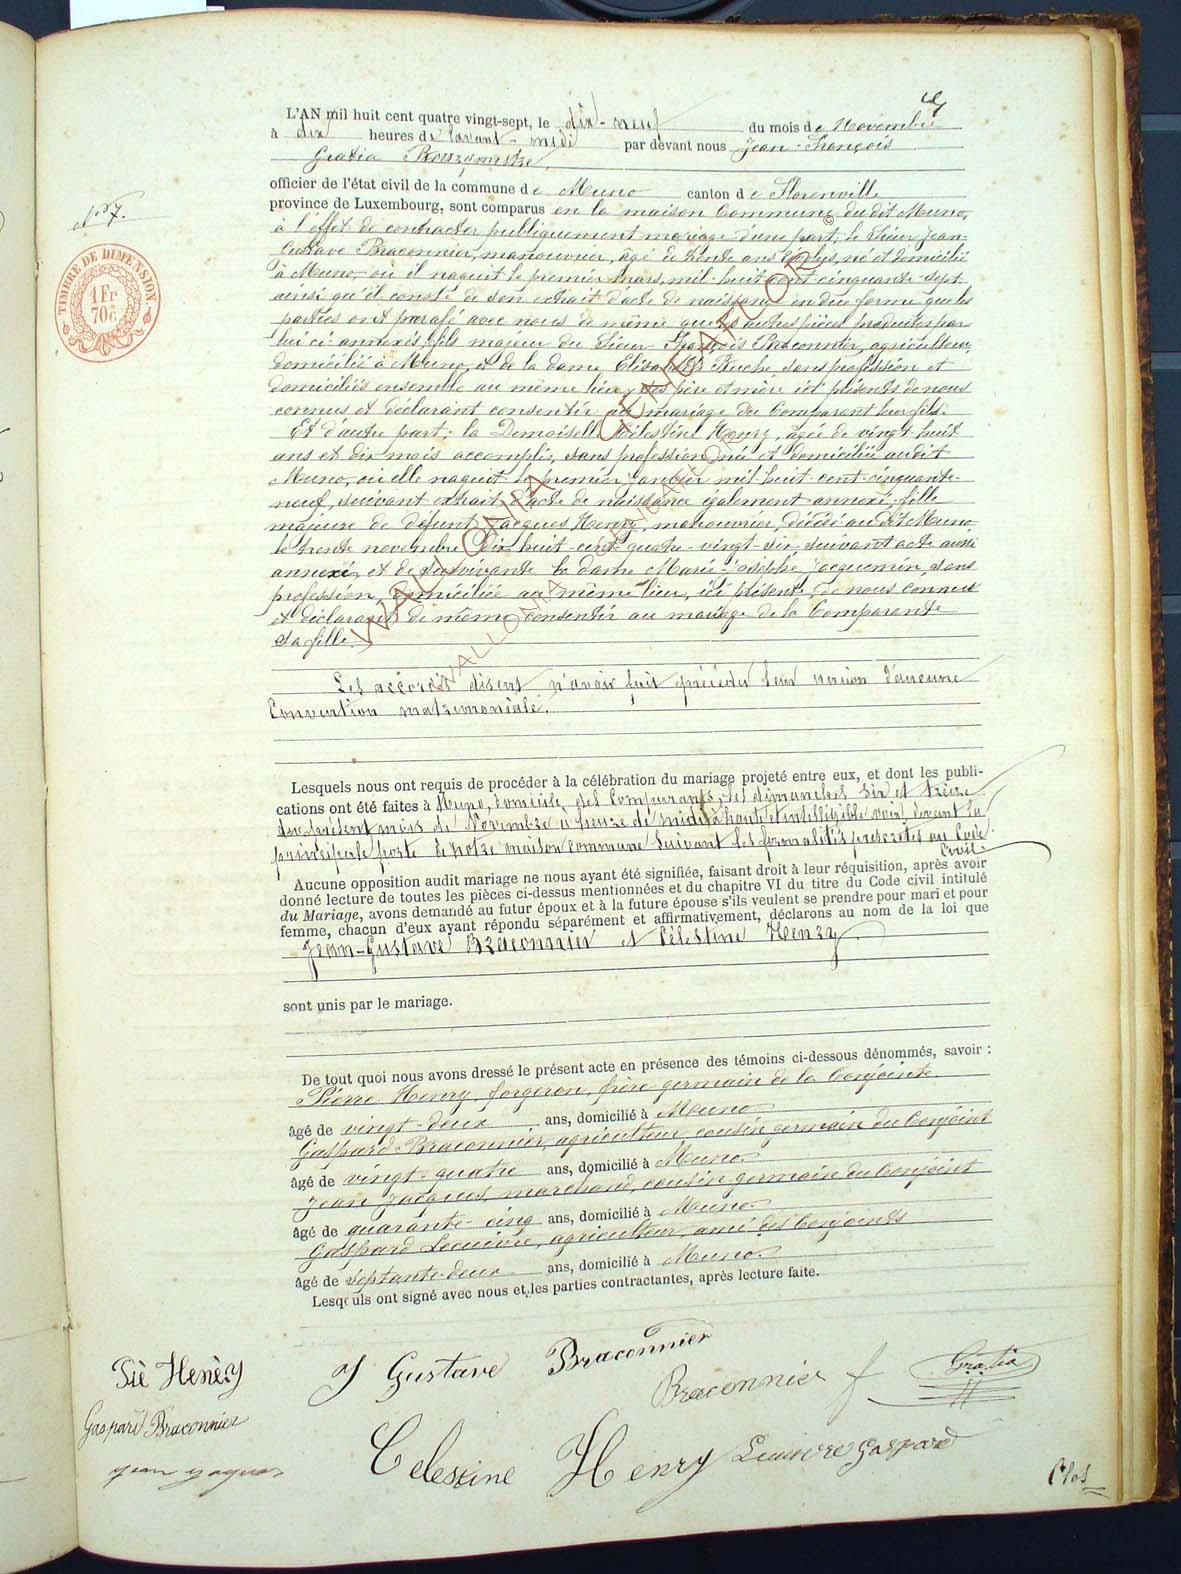 L'AN mil huit cent quatre vingt-sept, le dix-neuf du mois de Novembre
à dix heures de l'avant-midi par devant nous Jean-François
Gratia Bourgmestre
officier de l'état civil de la commune de Muno canton de Florenville
province de Luxembourg, sont comparus en la maison Commune dudit Muno,
N° 7.
TIMBRE DE DIMENSION
1 Fr
70c
à l'effet de contracter publiquement mariage d'une part, le Sieur Jean-
Gustave Braconnier, manouvrier, âgé de trente ans, né et domicilié
à Muno où il naquit le premier mars mil-huit cent cinquante-sept
ainsi qu'il conste de son extrait d'acte de naissance en due forme que les
parties ont parafé avec nous de même que les autres pièces produites par
lui ci-annexés; fils majeur du Sieur François Braconnier, agriculteur
domicilié à Muno, et de la dame Elisabeth Buche, sans profession et
domiciliés ensemble au même lieu, ses père et mère ici présents de nous
connus et déclarant consentir au mariage du Comparant leur fils.
Et d'autre part; la Demoiselle Célestine Henry, âgée de vingt huit
ans et dix mois accomplis, sans profession née et domiciliée audit
Muno, où elle naquit le premier janvier mil-huit-cent-cinquante-
neuf, suivant extrait d'acte de naissance également annexé, fille
majeure de défunt Jacques Henry, manouvrier, décédé au dit Muno
le trente novembre dix huit-cent quatre-vingt-six suivant acte aussi
annexé, et de survivante la dame Marie-Josèphe Jacquemin, sans
profession, domiciliée au même lieu, ici présente, de nous connue
et déclarant de même consentir au mariage de la Comparante
sa fille
Les accordés disent n'avoir fait précéder leur union d'aucune
Convention matrimoniale.
Lesquels nous ont requis de procéder à la célébration du mariage projeté entre eux, et dont les publi-
cations ont été faites à Muno, domicile des Comparants, les dimanches six et treize
du présent mois de Novembre à heure de midi à haute et intelligible voix, devant la
principale porte de notre maison commune suivant les formalités prescrites au Code
Civil.
Aucune opposition audit mariage ne nous ayant été signifiée, faisant droit à leur réquisition, après avoir
donné lecture de toutes les pièces ci-dessus mentionnées et du chapitre VI du titre du Code civil intitulé
du Mariage, avons demandé au futur époux et à la future épouse s'ils veulent se prendre pour mari et pour
femme, chacun d'eux ayant répondu séparément et affirmativement, déclarons au nom de la loi que
Jean-Gustave Braconnier et Célestine Henry
sont unis par le mariage.
De tout quoi nous avons dressé le présent acte en présence des témoins ci-dessous dénommés, savoir :
Pierre Henry, forgeron, frère germain de la Conjointe.
âgé de vingt-deux ans, domicilié à Muno.
Gaspard Braconnier, agriculteur, cousin germain du Conjoint
âgé de vingt-quatre ans, domicilié à Muno.
Jean Jacques, marchand, cousin germain du Conjoint
âgé de quarante-cinq ans, domicilié à Muno.
Gaspard Lecuivre, agriculteur, ami des Conjoints
âgé de septante-deux ans, domicilié à Muno.
Lesquels ont signé avec nous et les parties contractantes, après lecture faite.
Piè Henèry
J Gustave Braconnier
Braconnier f
Gratia
Gaspard Braconnier
Jean Jaques
Celestine Henry
Lecuivre Gaspard
Clos
© WALLONIA GENGAFLOR
WALLONIA GENGAFLOR